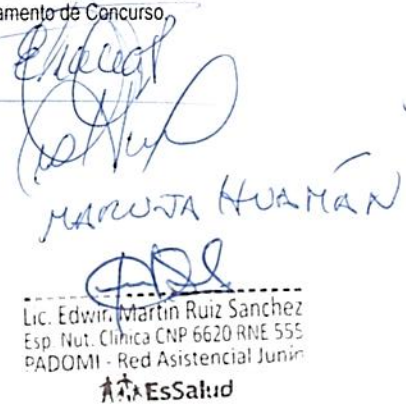 amento de Concurso,
MARUJA HUAMÁN
Lic. Edwin Martin Ruiz Sanchez
Esp. Nut. Clinica CNP 6620 RNE 555
PADOMI - Red Asistencial Junin
EsSalud